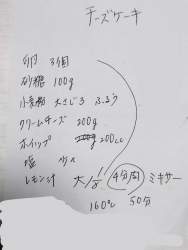 チーズケーキ
卵 3個
砂糖 100g
小麦粉 大さじ3 ふるう
クリームチーズ 200g
ホイップ 200cc
塩 少々
レモン汁 大1
4分間 ミキサー
160℃ 50分